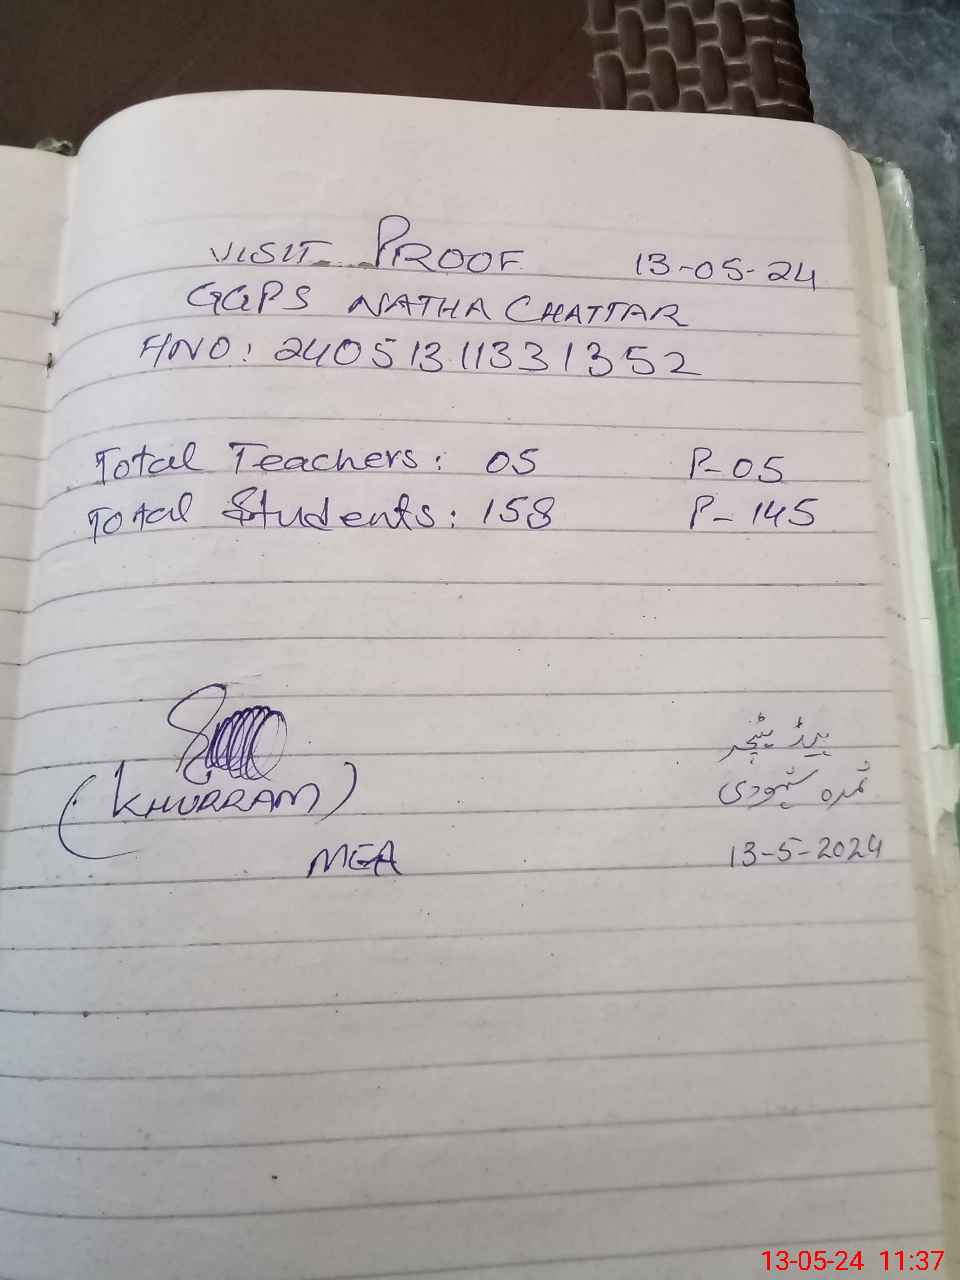 VISIT PROOF 13-05-24
GGPS NATHA CHATTAR
HNO: 24051311331352
Total Teachers: 05 P-05
Total Students: 158 P-145
(KHURRAM)
MEA
ہیڈ ٹیچر
ثمرہ
13-5-2024
13-05-24 11:37